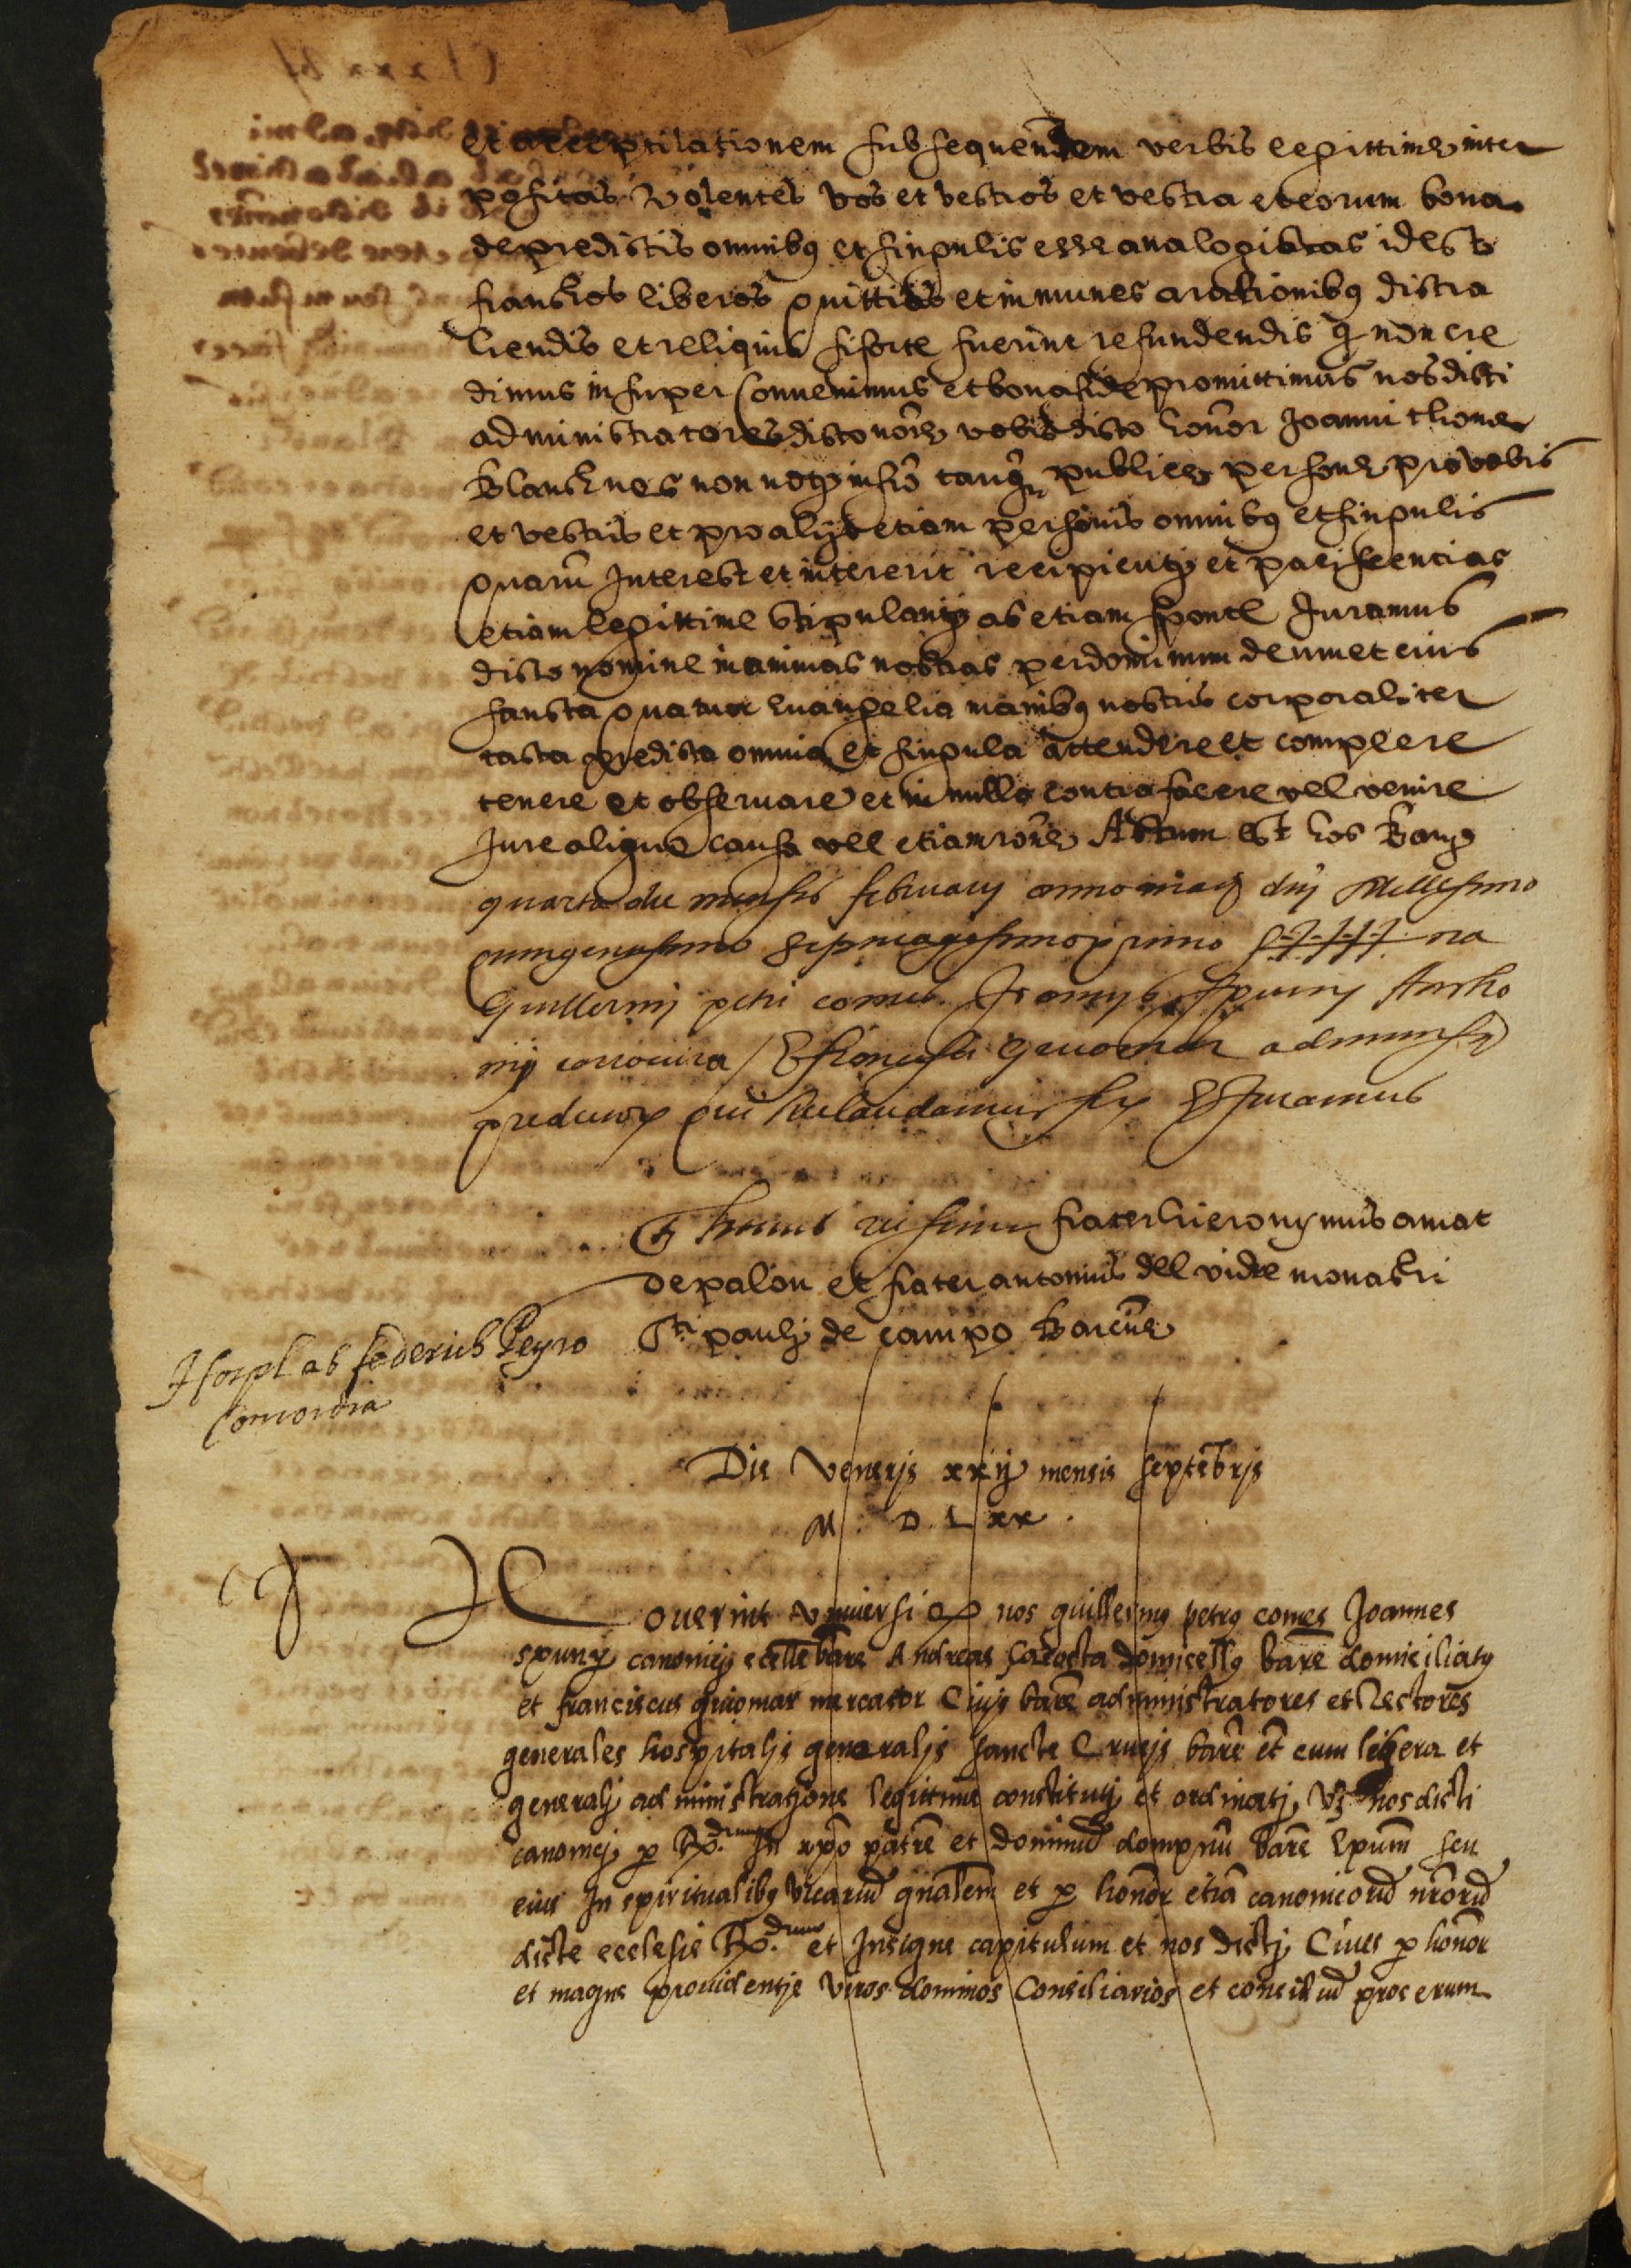 et acceptilationem subsequendam verbis legittime inter
positas volentes vos et vestros et vestra et eorum bona
de predictis omnibus et singulis esse analogistas id est
franchos liberos quittios et inmunes a rationibus distra
hendis et reliquis si forte fuerint refundendis q non cre
dimus insuper convenimus et bona fide promittimus nos dicti
administratores dicto noīe vobis dicto honor Joanni thome
Blanchnes non notario infro tanq publice persone pro vobis
et vestris et pro alijs etiam personis omnibus et singulis
quarū interest et intererit recipienti et paciscenti ac
etiam legittime stipulanti ac etiam sponte Juramus
dicto nomine in animas nostras per dominum deum et eius
sancta quatuor euangelia manibus nostris corporaliter
tacta predicta omnia et singula attendere et complere
tenere et obseruare et in nullo contra facere vel venire
Jure aliquo causa vel etiam rōne Actum est hoc Barq
quarta die mensis februarij anno a naq dnj Millesimo
quingentesimo septuagesimo primo S+++++na
Guillermj petri comes Joannis Spuny Antho
nij / Et francisci Giuomar adminis
predictorx qui hec laudamus et Juramus
Ts huius rei sunt frater hieronymus amat
de palou et frater antonius del vidre monachi
Sti pauli de campo Barcīne
Hospl ab federich Peyro
Concordia
Die Veneris xxij mensis septēbris
M . D . L xx .
Nouerint Vniuersi q nos guillermus petrus comes Joannes
spuny canonicj eccllē barē Andreas Sacosta domicellus barē domiciliatus
et franciscus giuomar mercator Ciuis barē administratores et Rectores
generales hospitalis generalis sancte Crucis barē etc cum libera et
generalj administratione legittime constitutj et ordinatj, Vz nos dicti
canonicj p Rx.dum In xpo patrē et dominū dompnū barē Epum seu
eius In spiritualibus Vicariū gnalem et p honor etiā canonicorū nrorū
dicte ecclesie Rx.dum et Insigne capitulum et nos dictj Ciues p honor
et magne prouidentie Viros dominos Consiliarios et consiliū procerum